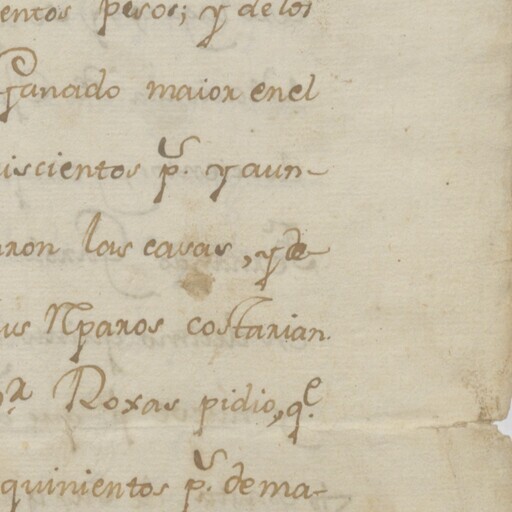 entos pesos; y de los
Ganado maior en el
iscientos p.s y aun-
ron las casas, y de
us Rparos costarian.
or Roxas pidio, q.e
quinientos p.s de ma-